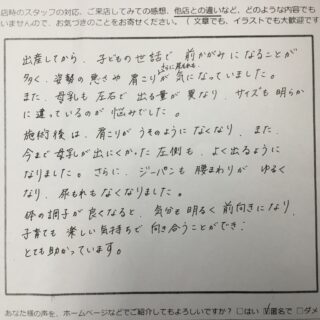 店時のスタッフの対応、ご来店してみての感想、他店との違いなど、どのような内容でも
いませんので、お気づきのことをお寄せください。（文章でも、イラストでも大歓迎です
出産してから、子どもの世話で前かがみになることが
多く、姿勢の悪さや肩こりが気になっていました。
また、母乳も左右で出る量が異なり、サイズも明らか
に違っているのが悩みでした。
施術後は、肩こりがうそのようになくなり、また、
今まで母乳が出にくかった左側も、よく出るように
なりました。さらに、ジーパンも腰まわりがゆるく
なり、尿もれもなくなりました。
体の調子が良くなると、気分も明るく前向きになり、
子育ても楽しい気持ちで向き合うことができ、
とても助かっています。
あなた様の声を、ホームページなどでご紹介してもよろしいですか？ □はい □匿名で □ダメ